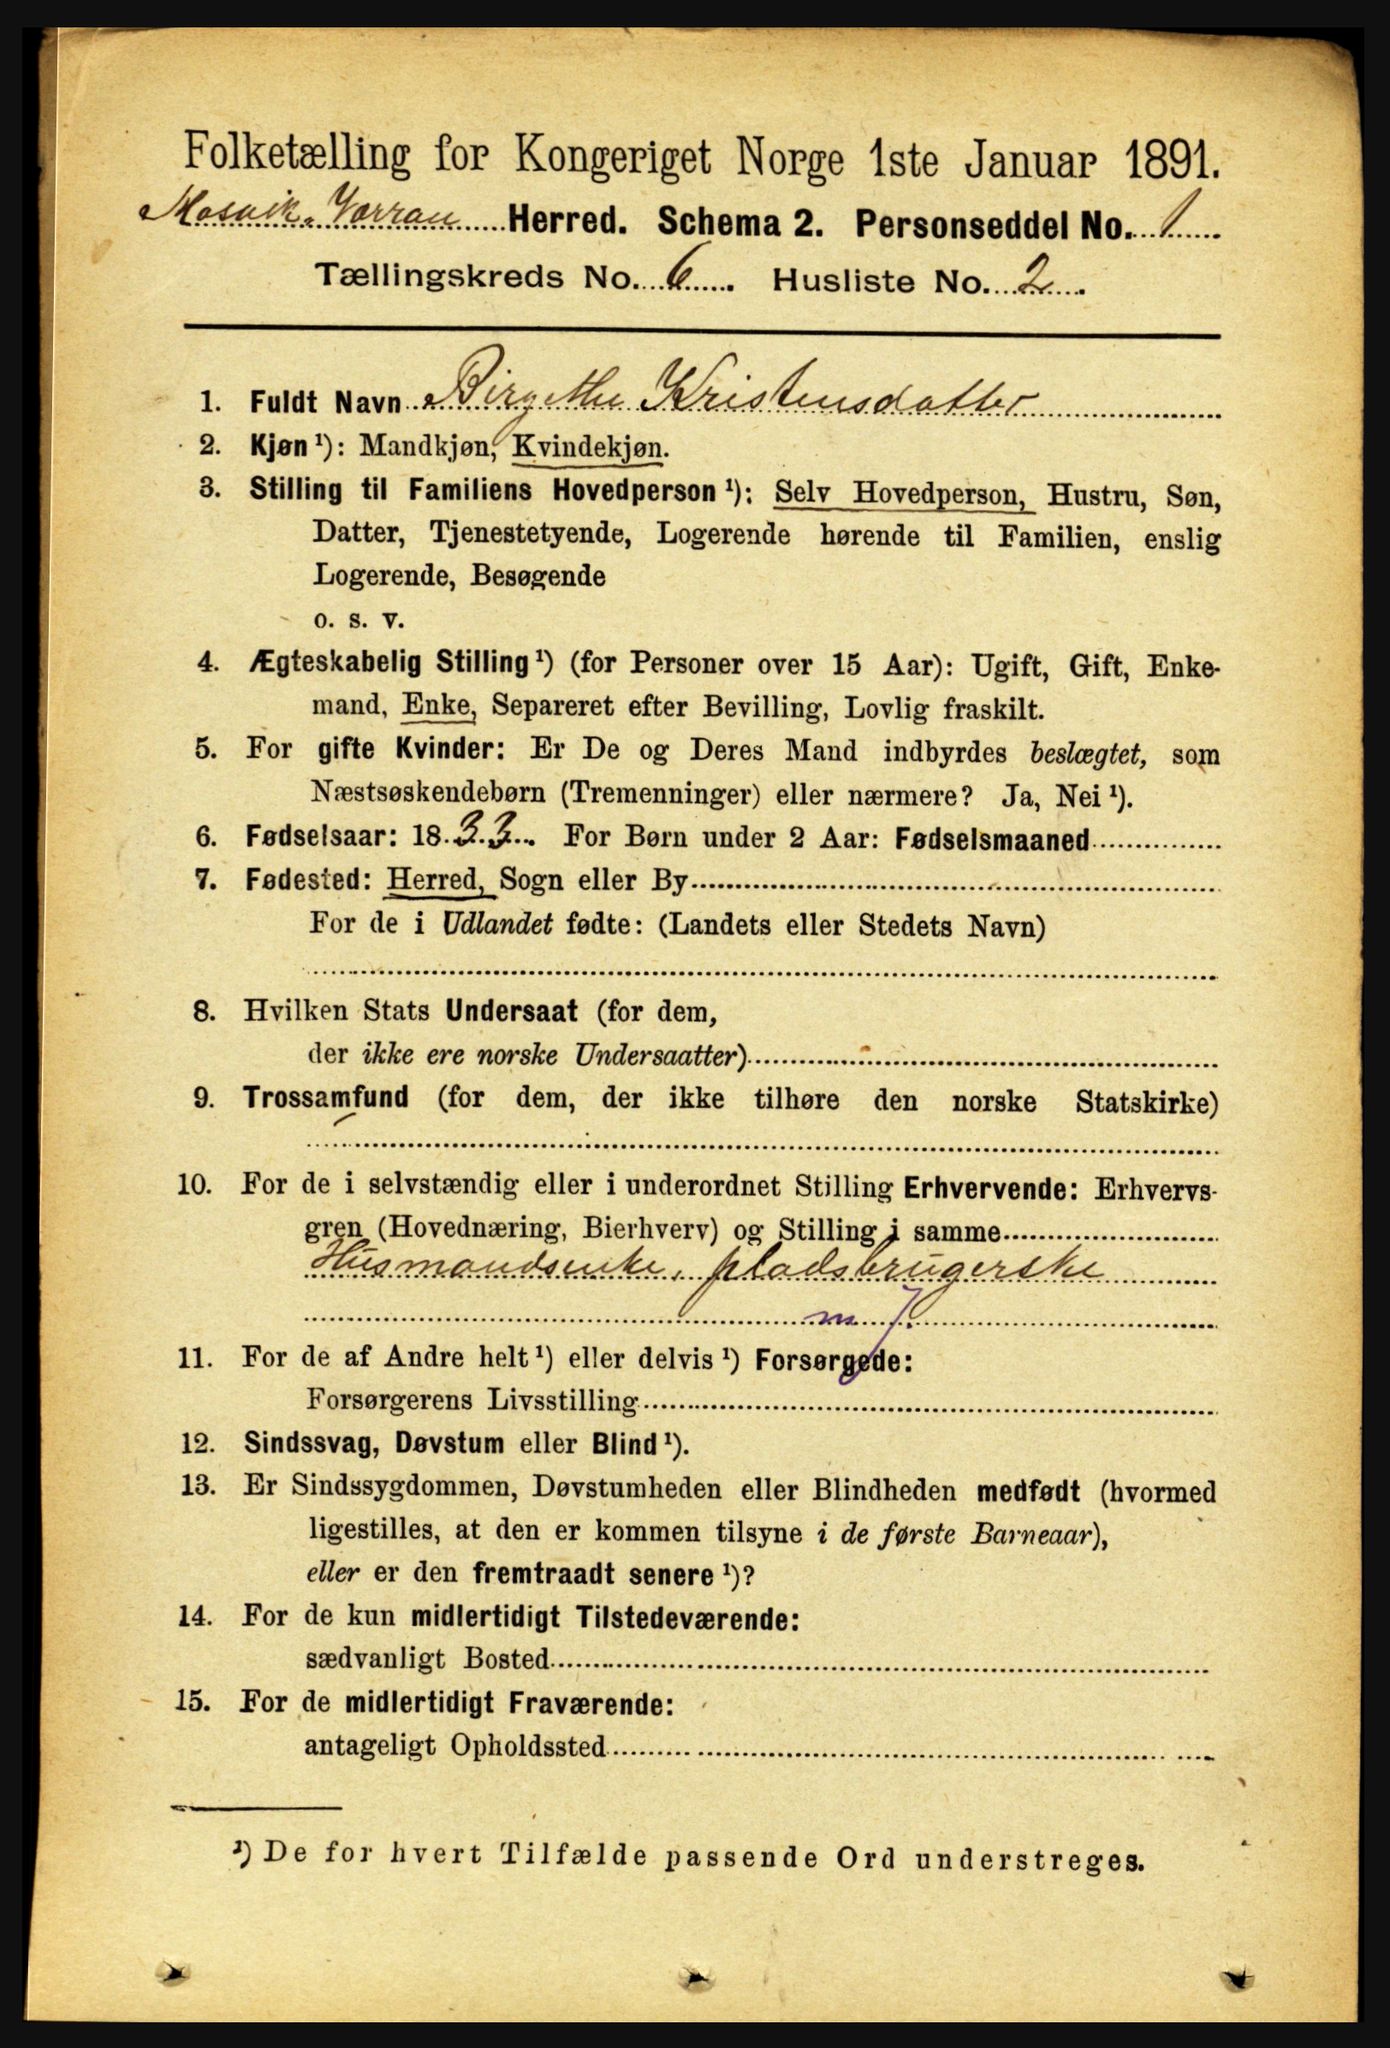 Folketælling for Kongeriget Norge 1ste Januar 1891.
Mosvik. Værran Herred. Schema 2. Personseddel No. 1
Tællingskreds No. 6. Husliste No. 2.
1. Fuldt Navn Birgethe Kristensdatter
2. Kjøn ¹): Mandkjøn, Kvindekjøn.
3. Stilling til Familiens Hovedperson ¹): Selv Hovedperson, Hustru, Søn,
Datter, Tjenestetyende, Logerende hørende til Familien, enslig
Logerende, Besøgende
o. s. v.
4. Ægteskabelig Stilling ¹) (for Personer over 15 Aar): Ugift, Gift, Enke-
mand, Enke, Separeret efter Bevilling, Lovlig fraskilt.
5. For gifte Kvinder: Er De og Deres Mand indbyrdes beslægtet, som
Næstsøskendebørn (Tremenninger) eller nærmere? Ja, Nei ¹).
6. Fødselsaar: 1833. For Børn under 2 Aar: Fødselsmaaned
7. Fødested: Herred, Sogn eller By
For de i Udlandet fødte: (Landets eller Stedets Navn)
8. Hvilken Stats Undersaat (for dem,
der ikke ere norske Undersaatter)
9. Trossamfund (for dem, der ikke tilhøre den norske Statskirke)
10. For de i selvstændig eller i underordnet Stilling Erhvervende: Erhvervs-
gren (Hovednæring, Bierhverv) og Stilling i samme
Husmandsenke, pladsbrugerske
m J.
11. For de af Andre helt ¹) eller delvis ¹) Forsørgede:
Forsørgerens Livsstilling
12. Sindssvag, Døvstum eller Blind ¹).
13. Er Sindssygdommen, Døvstumheden eller Blindheden medfødt (hvormed
ligestilles, at den er kommen tilsyne i de første Barneaar),
eller er den fremtraadt senere ¹)?
14. For de kun midlertidigt Tilstedeværende:
sædvanligt Bosted
15. For de midlertidigt Fraværende:
antageligt Opholdssted
¹) De for hvert Tilfælde passende Ord understreges.